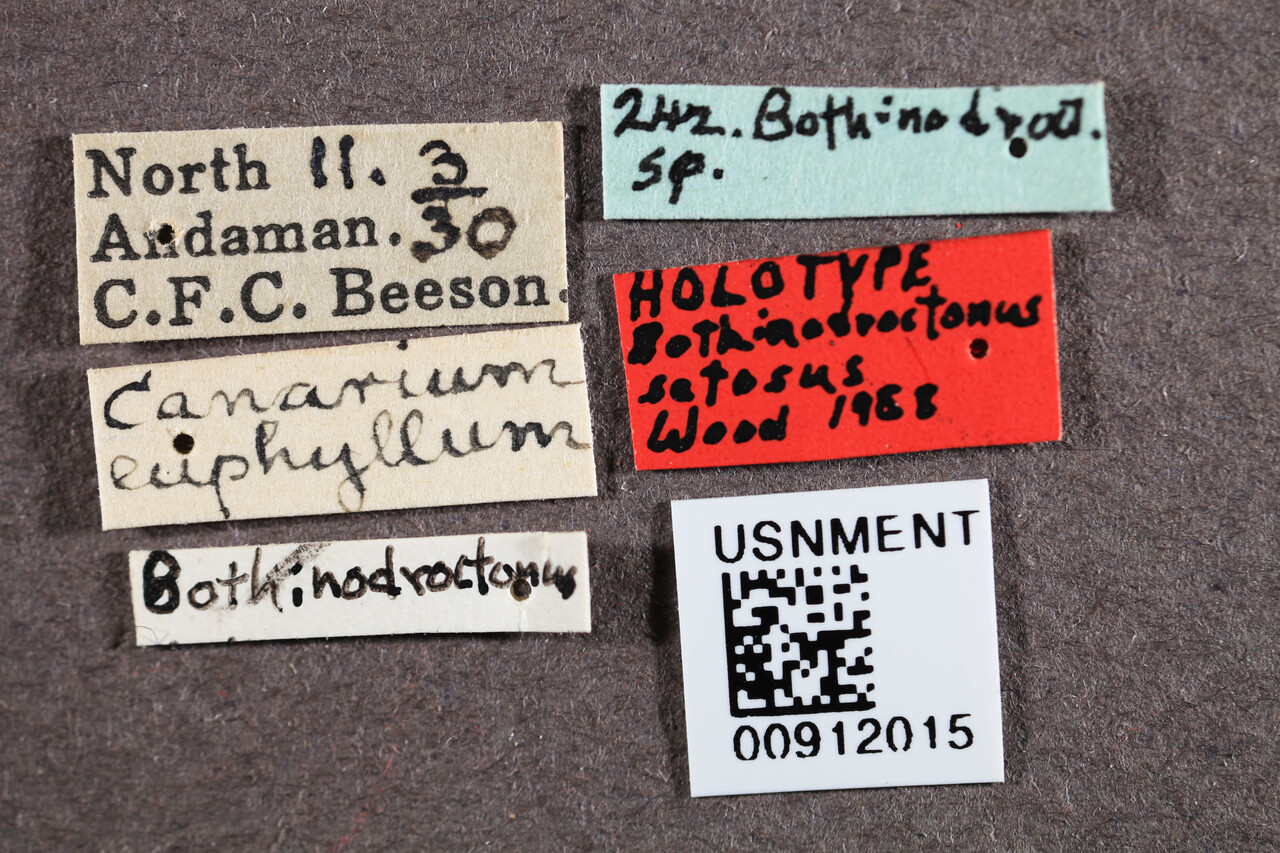 North 11. 3
Andaman. 30
C.F.C. Beeson.
Canarium
euphyllum
Bothinodroctonus
242. Bothinodroct.
sp.
HOLOTYPE
Bothinodroctonus
setosus
Wood 1988
USNMENT
00912015